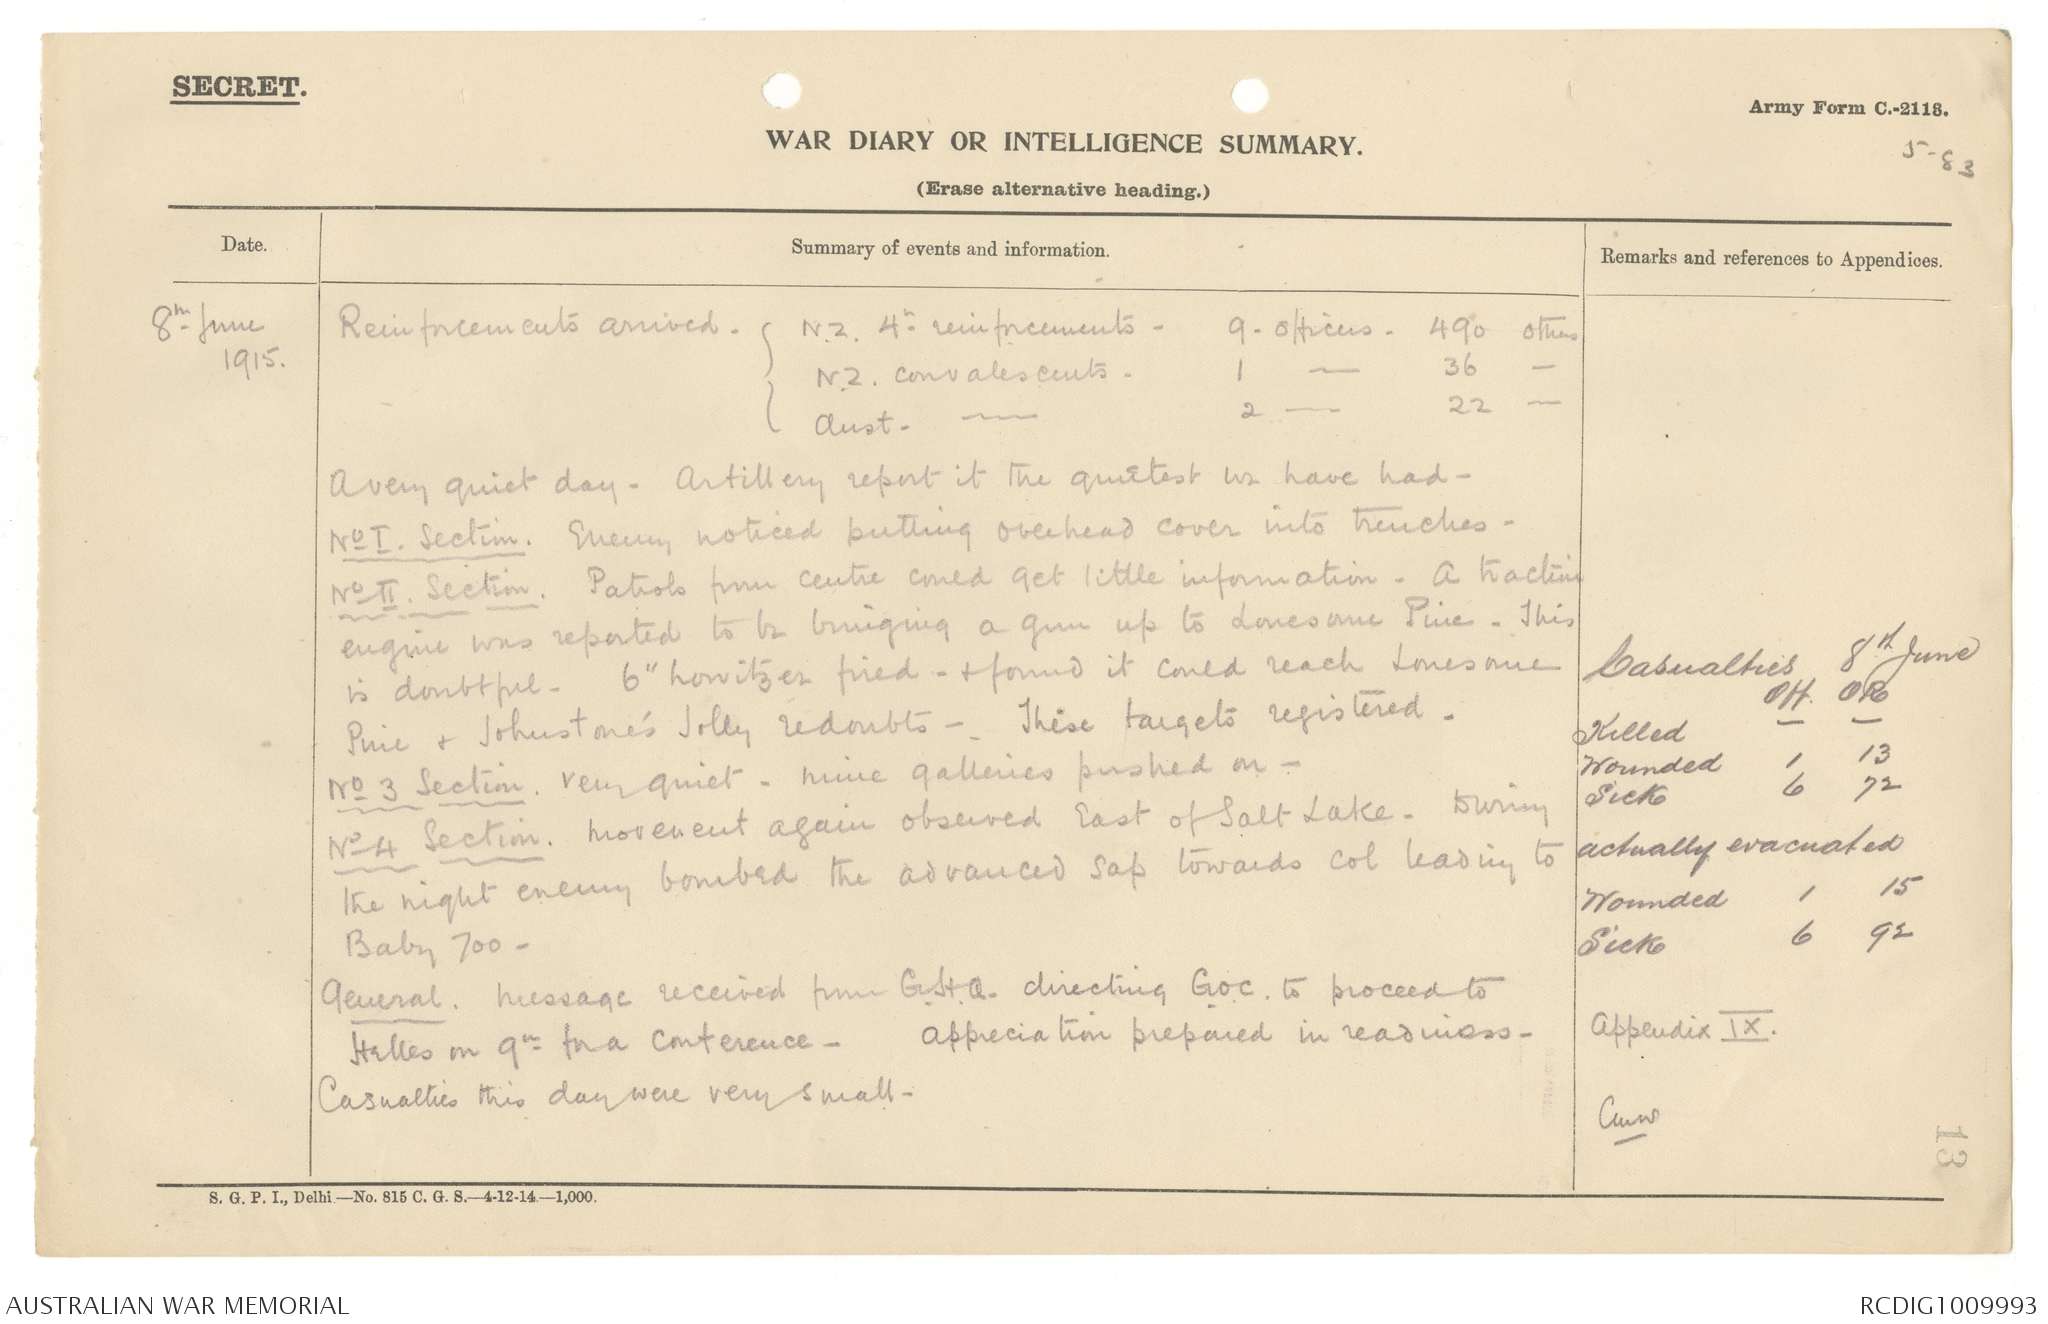 SECRET.
Army Form C.-2118.
WAR DIARY OR INTELLIGENCE SUMMARY.
5-83
(Erase alternative heading.)
Date.
Summary of events and information.
Remarks and references to Appendices.
8th June
1915.
Reinforcements arrived - N.Z. 4th reinforcements - 9 - officers - 490 others
N.Z. convalescents - 1 — 36 —
Aust. — 2 — 22 —
A very quiet day - Artillery report it the quietest we have had -
No I. Section. Enemy noticed putting overhead cover into trenches -
No II. Section. Patrols from centre could get little information - A traction
engine was reported to be bringing a gun up to Lonesome Pine - This
is doubtful - 6" howitzer fired - & found it could reach Lonesome
Pine & Johnstone's Jolly redoubts - These targets registered -
No 3 Section. Very quiet - mine galleries pushed on -
No 4 Section. Movement again observed East of Salt Lake - During
the night enemy bombed the advanced sap towards col leading to
Baby 700 -
General. Message received from G.H.Q. directing G.O.C. to proceed to
Helles on 9th for a conference - Appreciation prepared in readiness -
Casualties this day were very small -
Casualties 8th June
Off. OR
Killed — —
Wounded 1 13
Sick 6 72
actually evacuated
Wounded 1 15
Sick 6 92
Appendix IX.
13
S. G. P. I., Delhi—No. 815 C. G. S.—4-12-14—1,000.
AUSTRALIAN WAR MEMORIAL
RCDIG1009993